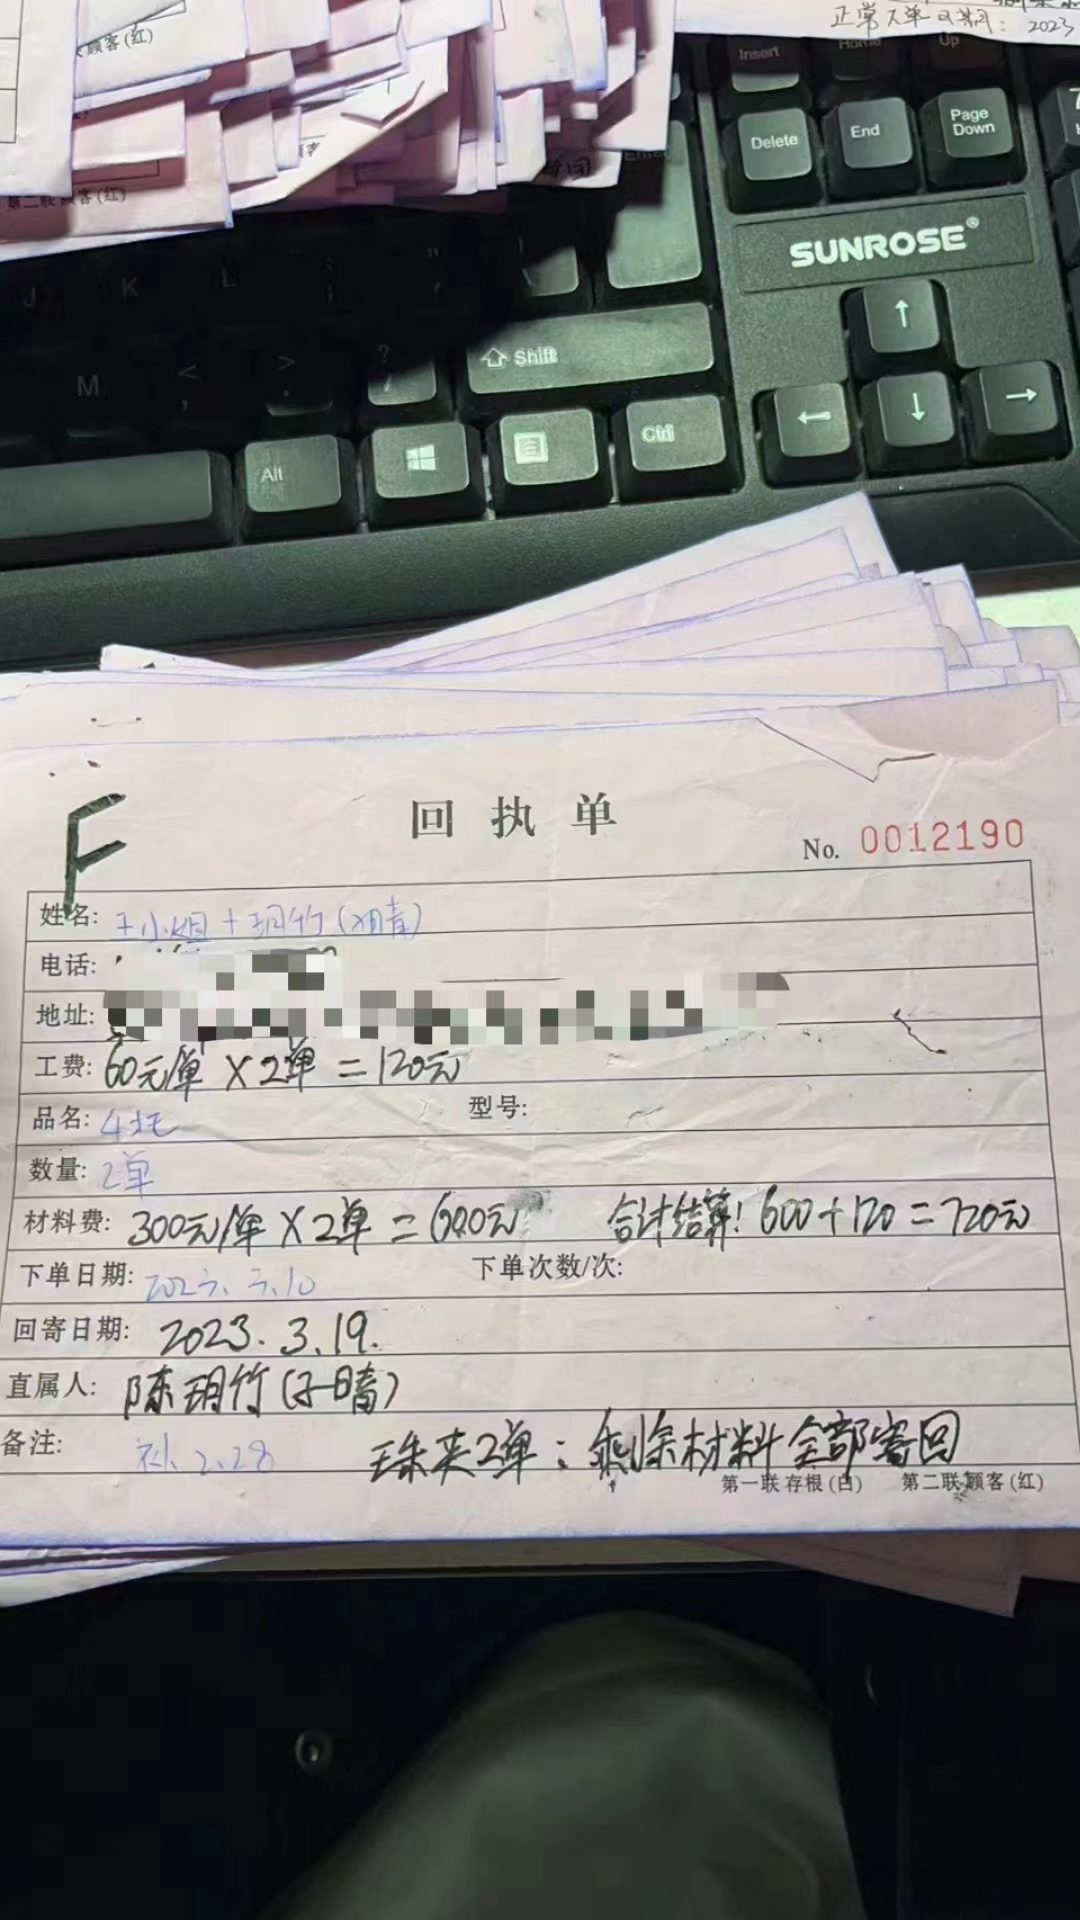 顾客(红)
正常大单日期: 2023
第二联顾客(红)
Insert
Home
Up
Delete
End
Page Down
Enter
SUNROSE®
J K L : ; " '
M < , > . ? /
Shift
↑
Alt
Ctrl
← ↓ →
F
回执单
No. 0012190
姓名: 王小姐+玥竹(
电话:
地址:
工费: 60元/单×2单=120元
品名: 4托 型号:
数量: 2单
材料费: 300元/单×2单=600元 合计结算! 600+120=720元
下单日期: 2023.3.10 下单次数/次:
回寄日期: 2023.3.19.
直属人: 陈玥竹(子晴)
备注: 补.2.28 珠夹2单:剩余材料全部寄回
第一联存根(白) 第二联顾客(红)